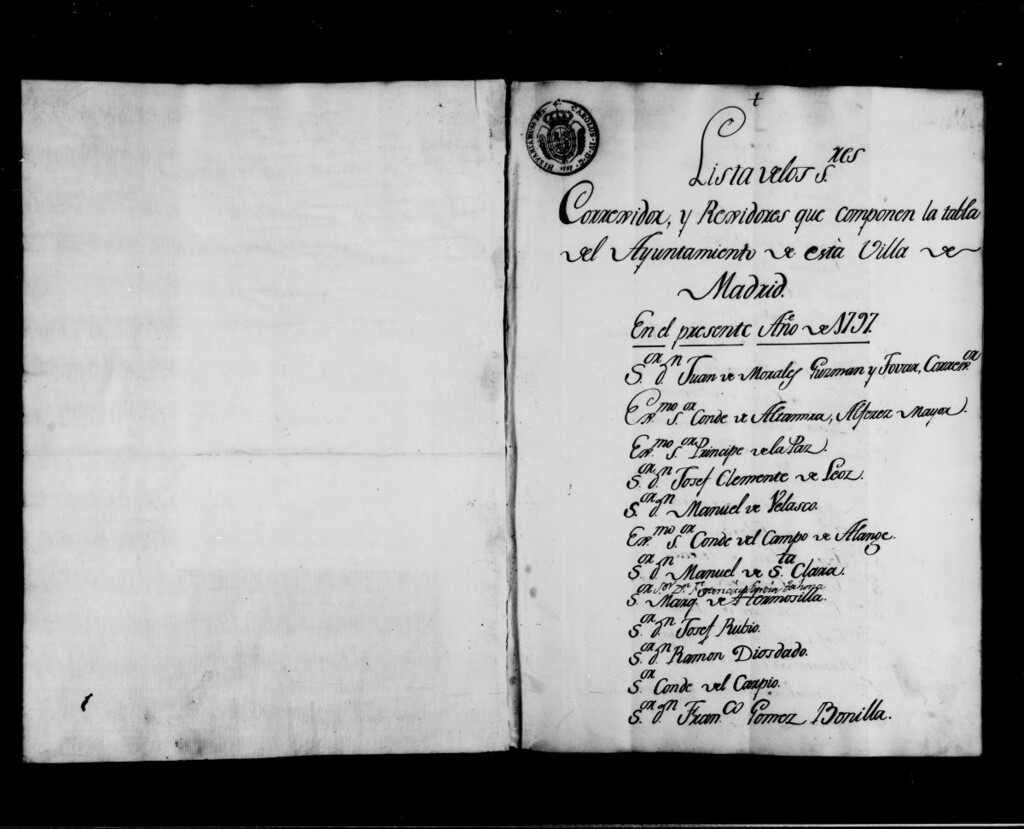 +
CAROLUS IV D. G. HISPANIARUM REX
1797
Lista de los S.res
Correxidor, y Rexidores que componen la tabla
del Ayuntamiento de esta Villa de
Madrid.
En el presente Año de 1797.
S.or d.n Juan de Morales Guzman y Tovar, Correx.or
Ex.mo S.or Conde de Altamira, Alferez Mayor.
Ex.mo S.or Principe de la Paz.
S.or d.n Josef Clemente de Leoz.
S.or d.n Manuel de Velasco.
Ex.mo S.or Conde del Campo de Alange.
S.or d.n Manuel de S.ta Clara.
S.or D.n
S.or Marq. de Hermosilla.
S.or d.n Josef Rubio.
S.or d.n Ramon Diosdado.
S.or Conde del Carpio.
S.or d.n Fran.co Gomez Bonilla.